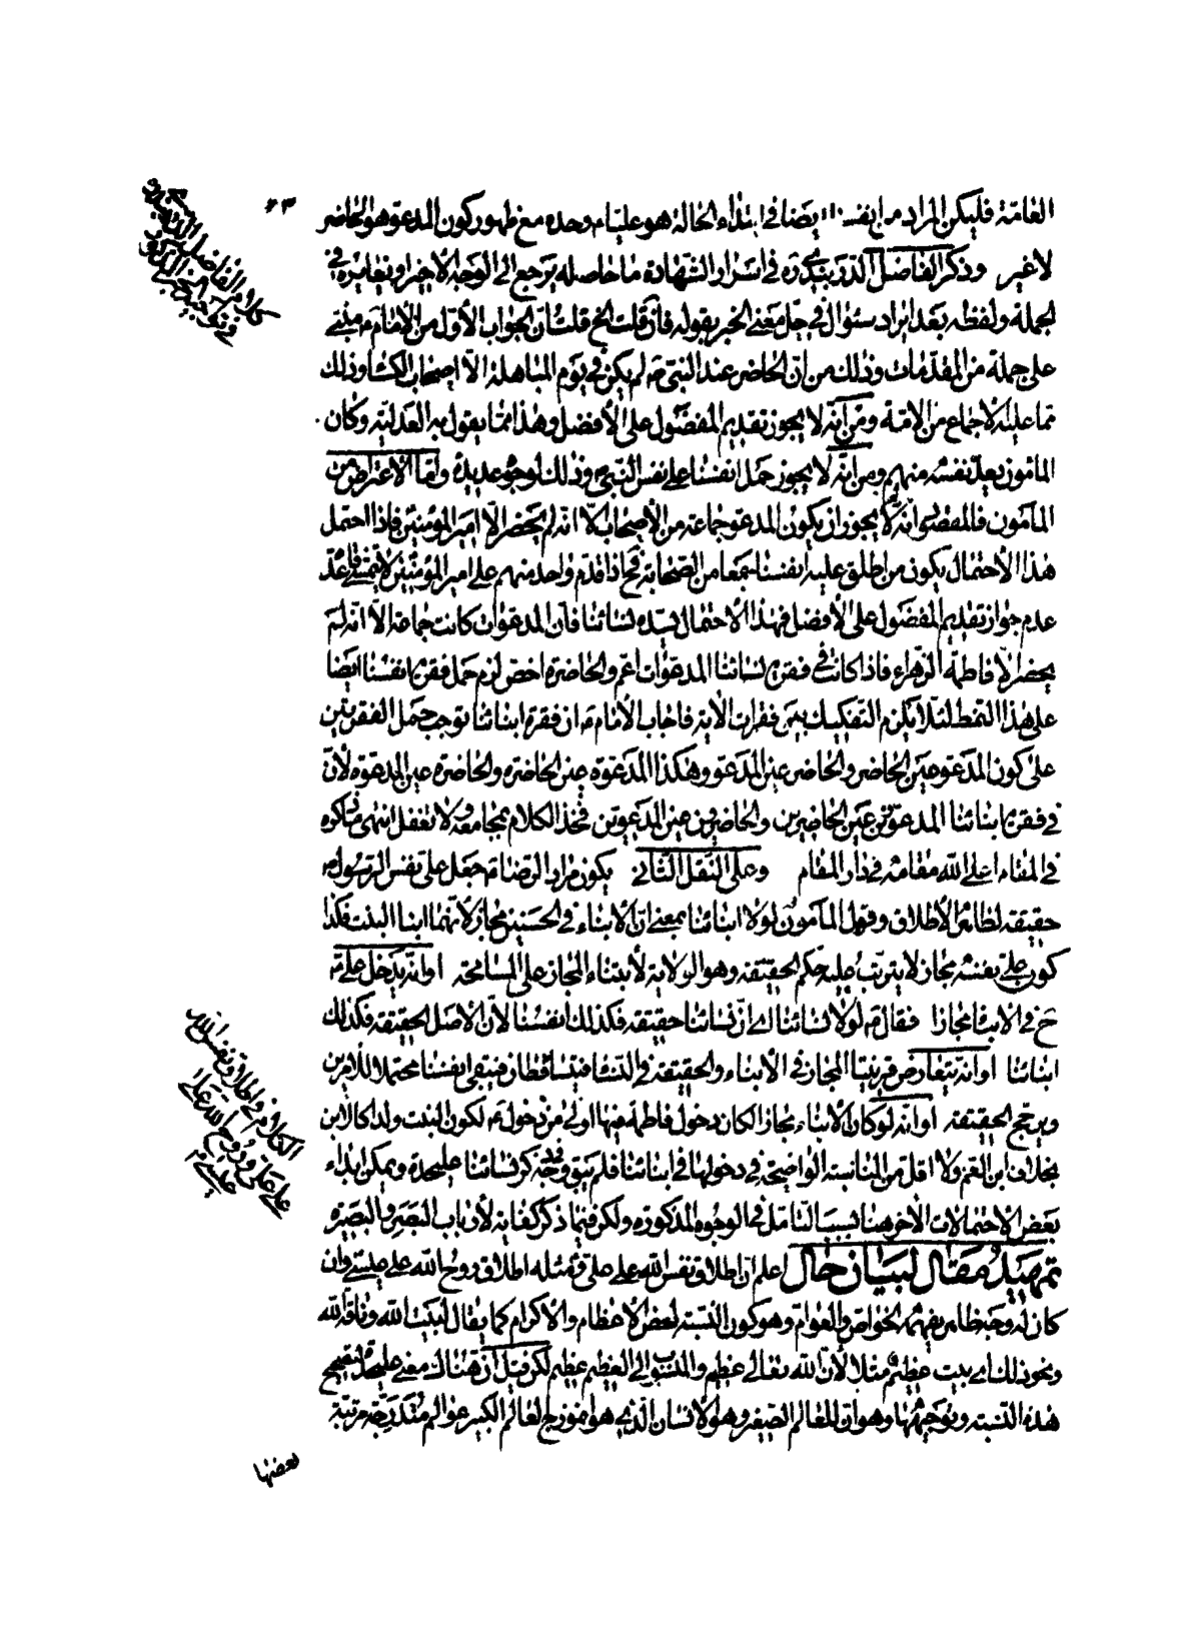 ٤٣
العامّة فليكن المراد من انفسنا ايضا في ابتداء الحالة هو عليّا ع وحده مع ظهور كون المدعوّ هو الحاضر
لا غير وذكر الفاضل الدربندي ره في اسرار الشهادة ما حاصله يرجع الى الوجه الاخير او يغايره في
الجملة ولفظه بعد ايراد سؤال في حلّ معنى الخبر بقوله فان قلت الخ قلت انّ الجواب الأوّل من الامام ع مبنيّ
على جملة من المقدّمات وذلك من انّ الحاضر عند النبيّ ص لم يكن في يوم المباهلة الّا اصحاب الكساء وذلك
ممّا عليه الاجماع من الامّة ومن انّه لا يجوز تقديم المفضول على الأفضل وهذا ممّا يقول به العدليّة وكان
المأمون يعدّ نفسه منهم ومن انّه لا يجوز حمل انفسنا على نفس النبيّ وذلك لوجوه عديدة وامّا الاعتراض من
المأمون فالمقصود انّه لم لا يجوز ان يكون المدعوّ جماعة من الأصحاب الّا انّه لم يحضر الّا امير المؤمنين فاذا احتمل
هذا الأحتمال يكون من اطلق عليه انفسنا جمعا من الصّحابة فح اذا قدم واحد منهم على امير المؤمنين لا يتمشى قاعدة
عدم جواز تقديم المفضول على الأفضل فهذا الاحتمال يسدّه نسائنا فانّ المدعوات كانت جماعة الّا انّه لم
يحضر الّا فاطمة الزّهراء فاذا كانت في فقرة نسائنا المدعوّات اعمّ والحاضرة اخصّ لزم حمل فقرة انفسنا ايضا
على هذا النمط لئلّا يلزم التفكيك بين فقرات الآية فاجاب الأمام ع ان فقرة ابنائنا توجب حمل الفقرتين
على كون المدعو عين الحاضر والحاضر عين المدعو وهكذا المدعوّة عين الحاضرة والحاضرة عين المدعوة لأنّ
في فقرة ابنائنا المدعوّين عين الحاضرين والحاضرين عين المدعوين فخذ الكلام بمجامعه ولا تغفل انتهى كلامه
في المقام اعلى الله مقامه في دار المقام وعلى النقل الثاني يكون مراد الرضا ع جعل علي نفس الرسول ص
حقيقة لظاهر الأطلاق وقول المأمون لولا ابنائنا بمعنى انّ الأبناء في الحسنين مجاز لأنّهما ابنا البنت فكذا
كون علي ع نفسه مجاز لا يترتّب عليه حكم الحقيقة وهو الولاية لأبتناء المجاز على المسامحة او انّه يدخل علي ع
ح في الابناء مجازا فقال ع لولا نسائنا اي انّ نسائنا حقيقة فكذلك انفسنا لأنّ الأصل الحقيقة فكذلك
ابنائنا او انّه يتعارض قرينتا المجاز في الأبناء والحقيقة في النساء فيتساقطان فيبقى انفسنا محتملا للامرين
ويرجّح الحقيقة او انّه لو كان الأبناء مجازا لكان دخول فاطمة فيها اولى من دخوله ع لكون البنت ولدا كالابن
بخلاف ابن العم ولا اقل من المناسبة الواضحة في دخولها في ابنائنا فلم يبق وجه لذكر نسائنا عليحدة ويمكن ابداء
بعض الاحتمالات الأخر هنا بسبب التأمّل في الوجوه المذكورة ولكن فيما ذكر كفاية لأرباب البصر والبصيرة
تمهيد مقال لبيان حال اعلم انّ اطلاق نفس الله على علي ع ومثله اطلاق روح الله على عيسى ع وان
كان له وجه ظاهر يفهمه الخواصّ والعوام وهو كون النسبة لعض الأعظام والأكرام كما يقال لبيت الله وناقة الله
ونحو ذلك اي بيت عظيم مثلا لأنّ الله تعالى عظيم والمنسوب الى العظيم عظيم لكن قيل انّ هناك معنى عليحدة لتصحيح
هذه النسبة وتوجيهها وهو انّ للعالم الصّغير وهو الانسان الذي هو انموذج العالم الكبير عوالم متدرّجة مرتبة
بعضها
كلام الفاضل الدربندي
في توجيه الخبر المذكور
الكلام في اطلاق نفس الله
على علي ع وروح الله على
عيسى ع